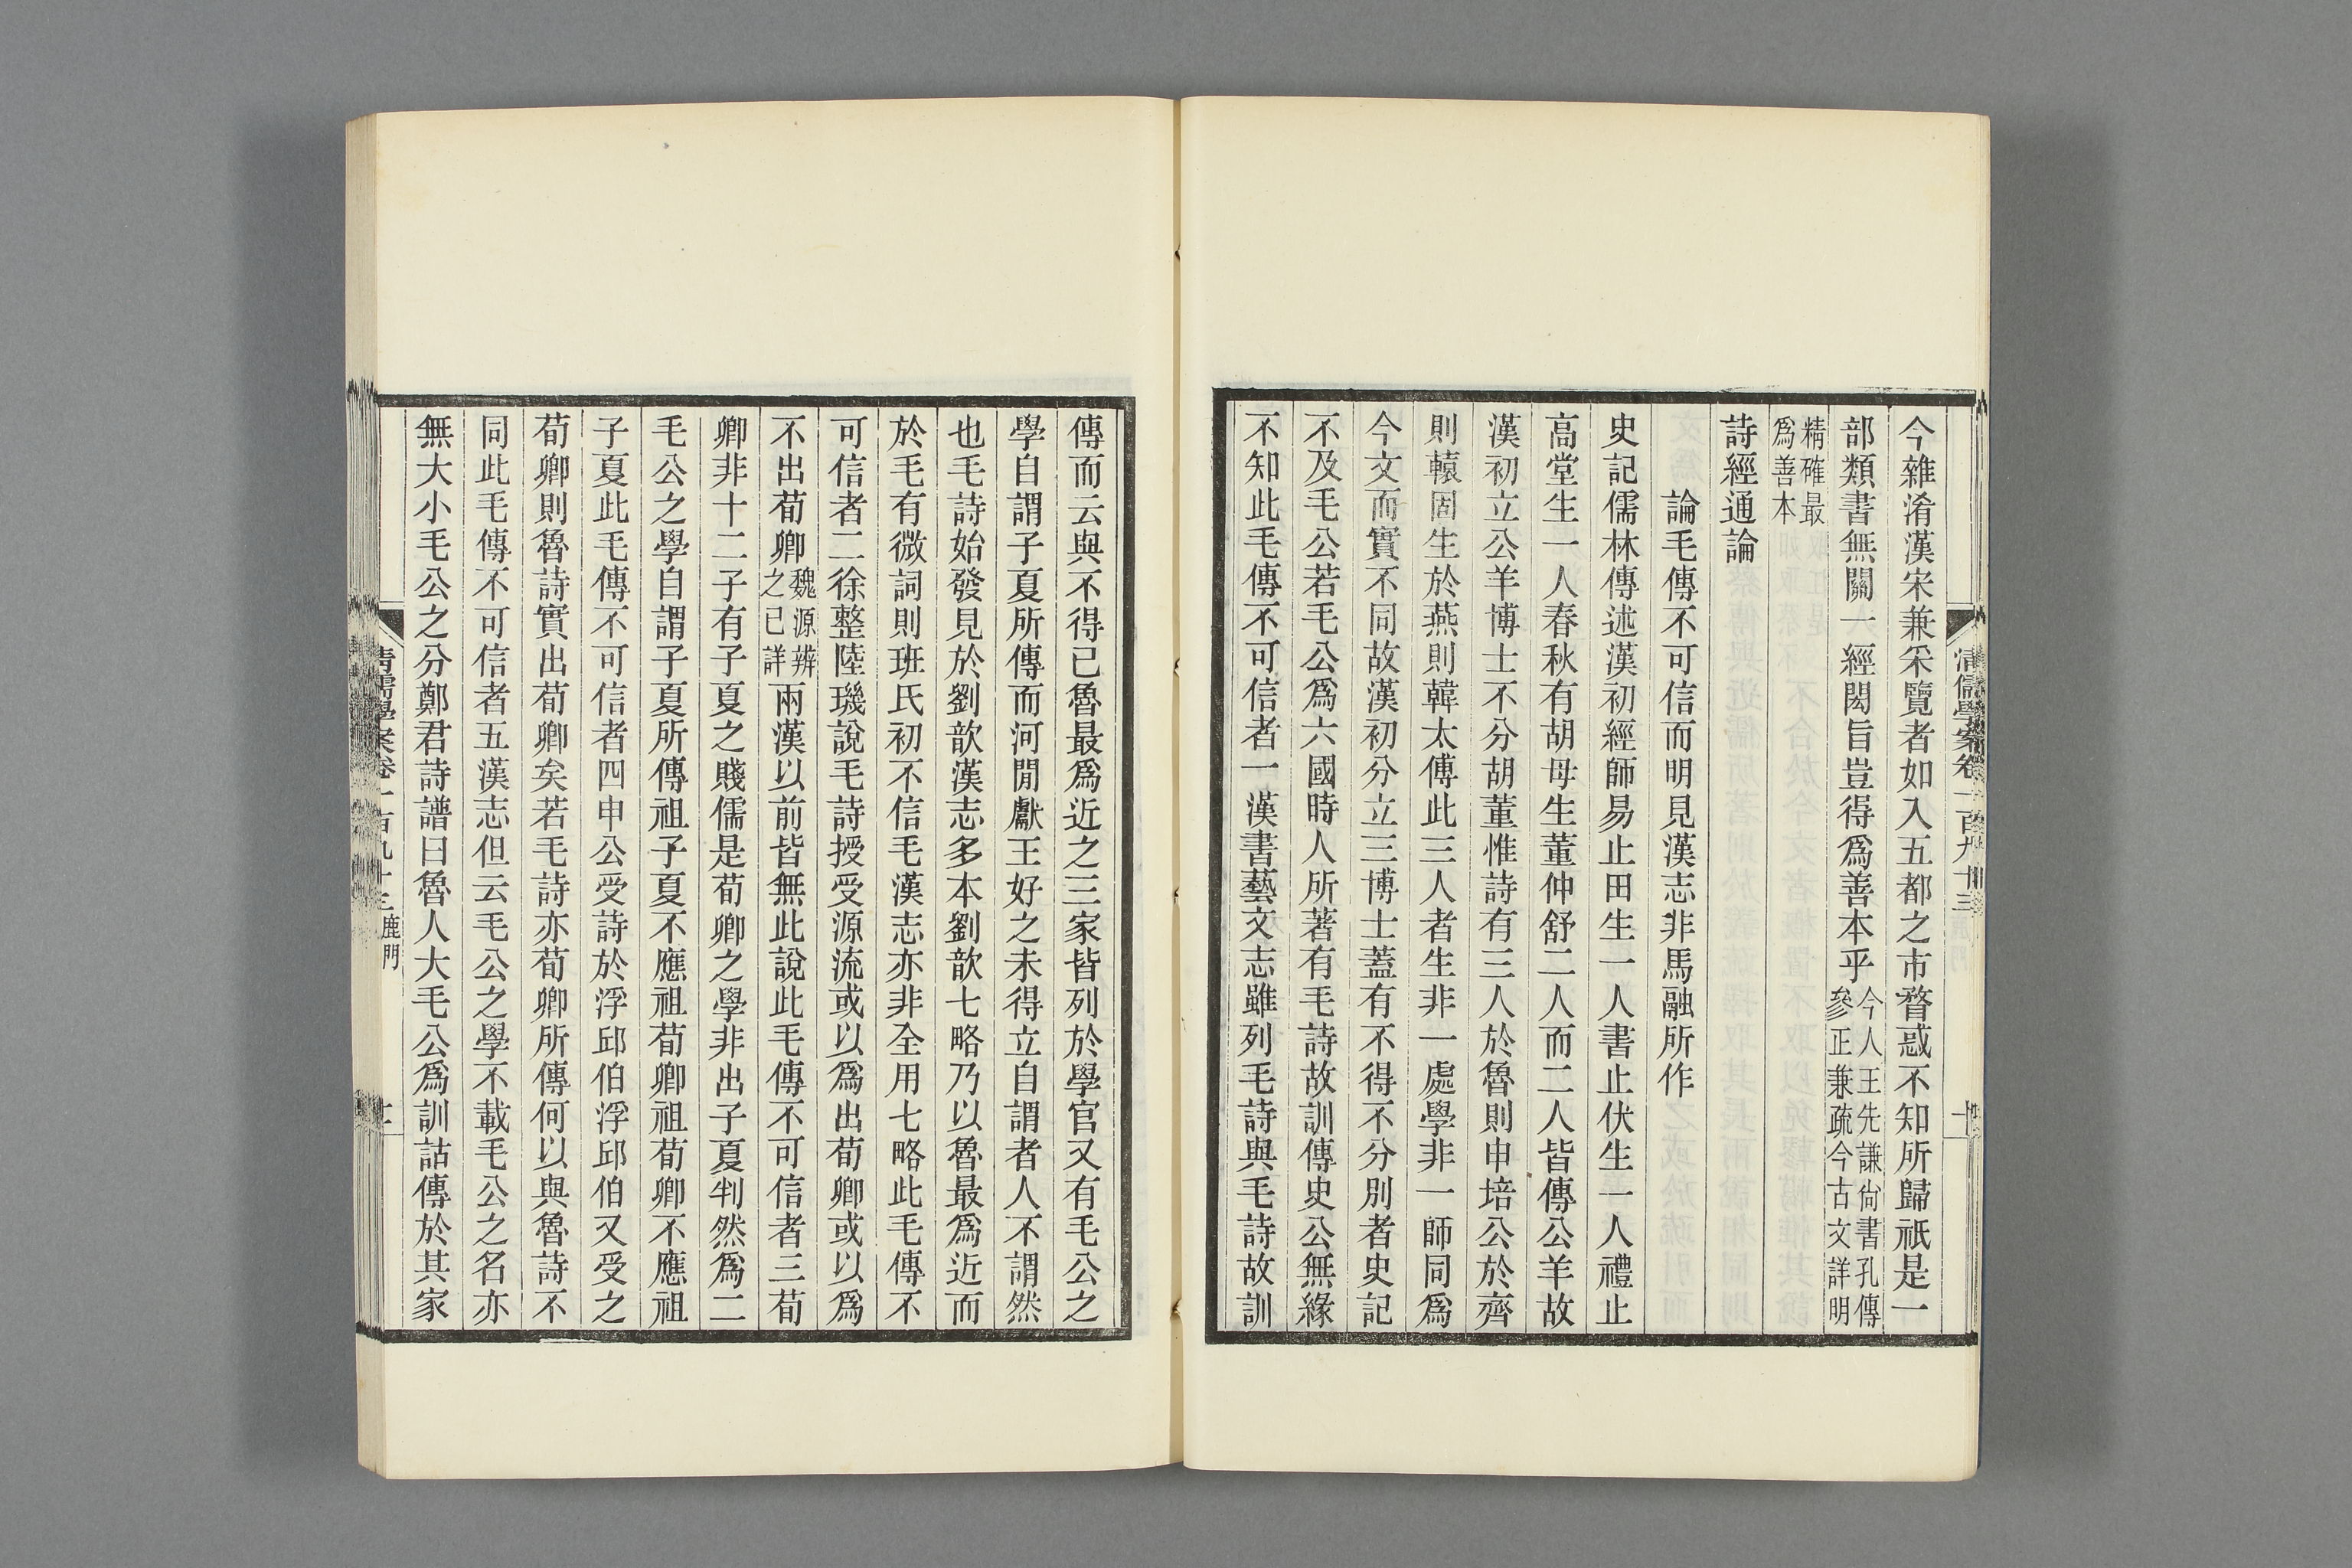 今雜淆漢宋兼采覽者如入五都之市瞀惑不知所歸祇是一
部類書無關一經閎旨豈得爲善本乎今人王先謙尙書孔傳參正兼疏今古文詳明
精確最爲善本
詩經通論
論毛傳不可信而明見漢志非馬融所作
史記儒林傳述漢初經師易止田生一人書止伏生一人禮止
高堂生一人春秋有胡母生董仲舒二人而二人皆傳公羊故
漢初立公羊博士不分胡董惟詩有三人於魯則申培公於齊
則轅固生於燕則韓太傅此三人者生非一處學非一師同爲
今文而實不同故漢初分立三博士蓋有不得不分別者史記
不及毛公若毛公爲六國時人所著有毛詩故訓傳史公無緣
不知此毛傳不可信者一漢書藝文志雖列毛詩與毛詩故訓
清儒學案卷一百九十三
傳而云與不得已魯最爲近之三家皆列於學官又有毛公之
學自謂子夏所傳而河閒獻王好之未得立自謂者人不謂然
也毛詩始發見於劉歆漢志多本劉歆七略乃以魯最爲近而
於毛有微詞則班氏初不信毛漢志亦非全用七略此毛傳不
可信者二徐整陸璣說毛詩授受源流或以爲出荀卿或以爲
不出荀卿魏源辨之已詳兩漢以前皆無此說此毛傳不可信者三荀
卿非十二子有子夏之賤儒是荀卿之學非出子夏判然爲二
毛公之學自謂子夏所傳祖子夏不應祖荀卿祖荀卿不應祖
子夏此毛傳不可信者四申公受詩於浮邱伯浮邱伯又受之
荀卿則魯詩實出荀卿矣若毛詩亦荀卿所傳何以與魯詩不
同此毛傳不可信者五漢志但云毛公之學不載毛公之名亦
無大小毛公之分鄭君詩譜曰魯人大毛公爲訓詁傳於其家
清儒學案卷一百九十三 鹿門